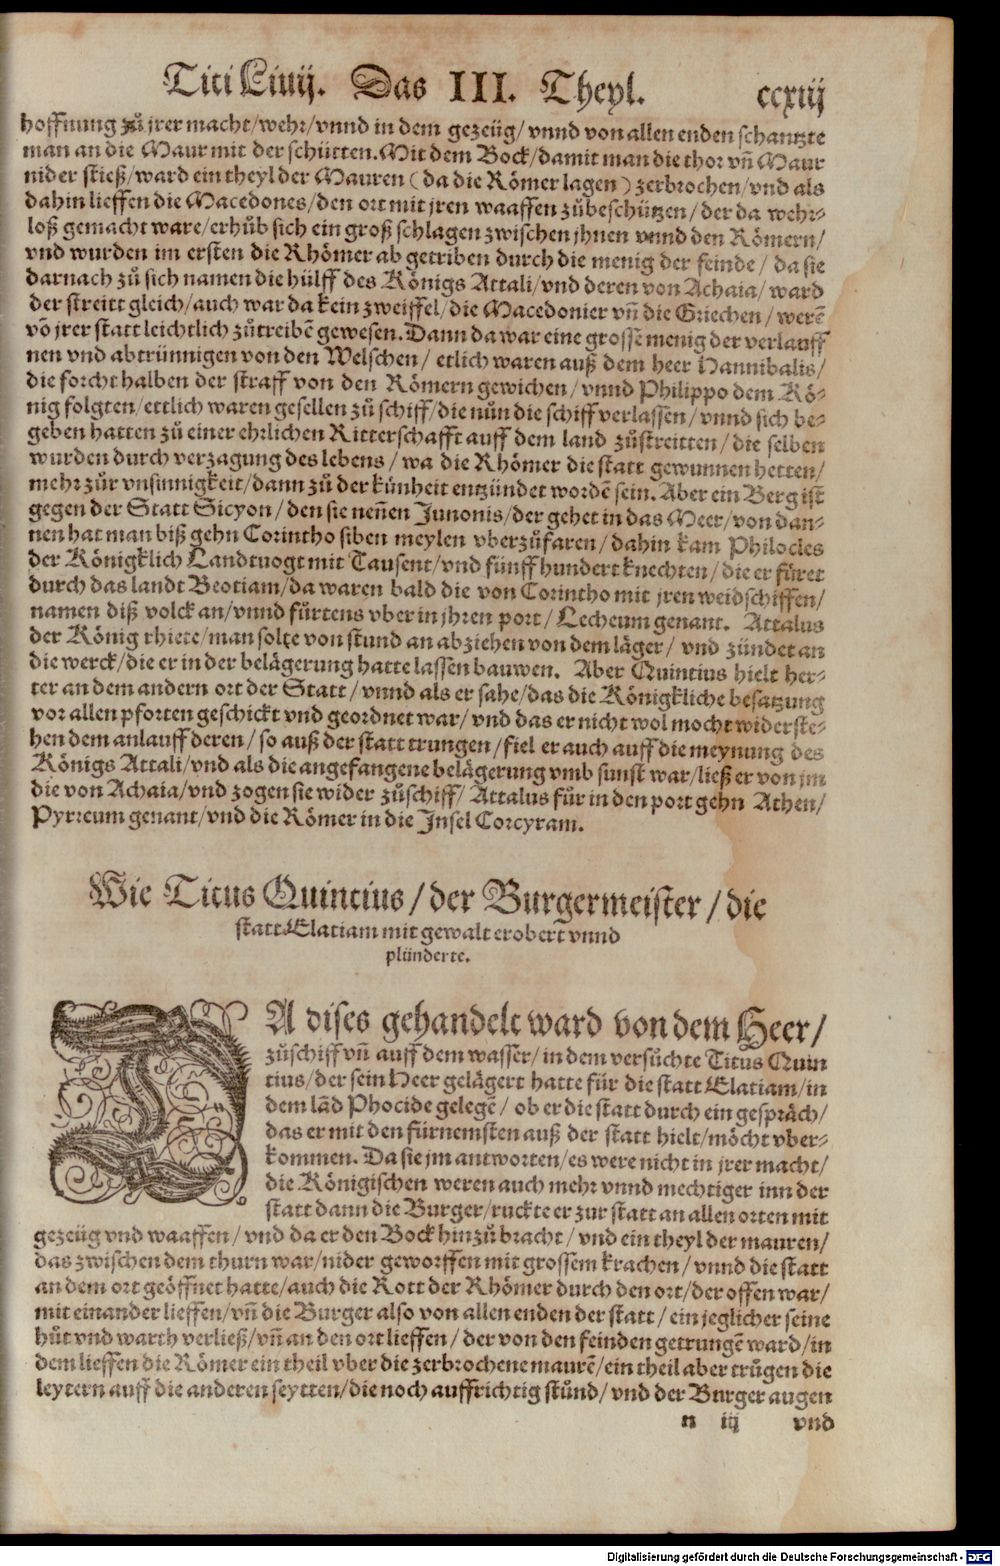 Titi Liuij. Das III. Theyl. ccxiij
hoffnung zů jrer macht/wehr/vnnd in dem gezeüg/vnnd von allen enden schantzte
man an die Maur mit der schütten. Mit dem Bock/damit man die thor vñ Maur
nider stieß/ward ein theyl der Mauren (da die Römer lagen) zerbrochen/vnd als
dahin lieffen die Macedones/den ort mit jren waaffen zůbeschützen/der da wehr-
loß gemacht ware/erhůb sich ein groß schlagen zwischen jhnen vnnd den Römern/
vnd wurden im ersten die Rhömer ab getriben durch die menig der feinde/da sie
darnach zů sich namen die hülff des Königs Attali/vnd deren von Achaia/ward
der streitt gleich/auch war da kein zweiffel/die Macedonier vñ die Griechen/werẽ
võ jrer statt leichtlich zůtreibẽ gewesen. Dann da war eine grosse menig der verlauff
nen vnd abtrünnigen von den Welschen/etlich waren auß dem heer Hannibalis/
die forcht halben der straff von den Römern gewichen/vnnd Philippo dem Kö-
nig folgten/ettlich waren gesellen zů schiff/die nůn die schiff verlassen/vnnd sich be-
geben hatten zů einer ehrlichen Ritterschafft auff dem land zůstreitten/die selben
wurden durch verzagung des lebens/wa die Rhömer die statt gewunnen hetten/
mehr zůr vnsinnigkeit/dann zů der künheit entzündet wordẽ sein. Aber ein Berg ist
gegen der Statt Sicyon/den sie neñen Junonis/der gehet in das Meer/von dan-
nen hat man biß gehn Corintho siben meylen vberzůfaren/dahin kam Philocles
der Königklich Landtuogt mit Tausent/vnd fünff hundert knechten/die er fůret
durch das landt Beotiam/da waren bald die von Corintho mit jren weidschiffen/
namen diß volck an/vnnd fůrtens vber in jhren port/Lecheum genant. Attalus
der König thiete/man solte von stund an abziehen von dem läger/vnd zündet an
die werck/die er in der belägerung hatte lassen bauwen. Aber Quintius hielt her-
ter an dem andern ort der Statt/vnnd als er sahe/das die Königkliche besatzung
vor allen pforten geschickt vnd geordnet war/vnd das er nicht wol mocht widerste-
hen dem anlauff deren/so auß der statt trungen/fiel er auch auff die meynung des
Königs Attali/vnd als die angefangene belägerung vmb sunst war/ließ er von jm
die von Achaia/vnd zogen sie wider zůschiff/Attalus fůr in den port gehn Athen/
Pyrreum genant/vnd die Römer in die Insel Corcyram.
Wie Titus Quintius/der Burgermeister/die
statt Elatiam mit gewalt erobert vnnd
plünderte.
DA dises gehandelt ward von dem Heer/
zůschiff vñ auff dem wasser/in dem versůchte Titus Quin
tius/der sein Heer gelägert hatte für die statt Elatiam/in
dem lãd Phocide gelegẽ/ob er die statt durch ein gespräch/
das er mit den fürnemsten auß der statt hielt/möcht vber-
kommen. Da sie jm antworten/es were nicht in jrer macht/
die Königischen weren auch mehr vnnd mechtiger inn der
statt dann die Burger/ruckte er zur statt an allen orten mit
gezeüg vnd waaffen/vnd da er den Bock hinzů bracht/vnd ein theyl der mauren/
das zwischen dem thurn war/nider geworffen mit grossem krachen/vnnd die statt
an dem ort geöffnet hatte/auch die Rott der Rhömer durch den ort/der offen war/
mit einander lieffen/vñ die Burger also von allen enden der statt/ein jeglicher seine
hůt vnd warth verließ/vñ an den ort lieffen/der von den feinden getrungẽ ward/in
dem lieffen die Römer ein theil vber die zerbrochene maurẽ/ein theil aber trůgen die
leytern auff die anderen seytten/die noch auffrichtig stůnd/vnd der Burger augen
n iij vnd
Digitalisierung gefördert durch die Deutsche Forschungsgemeinschaft - DFG